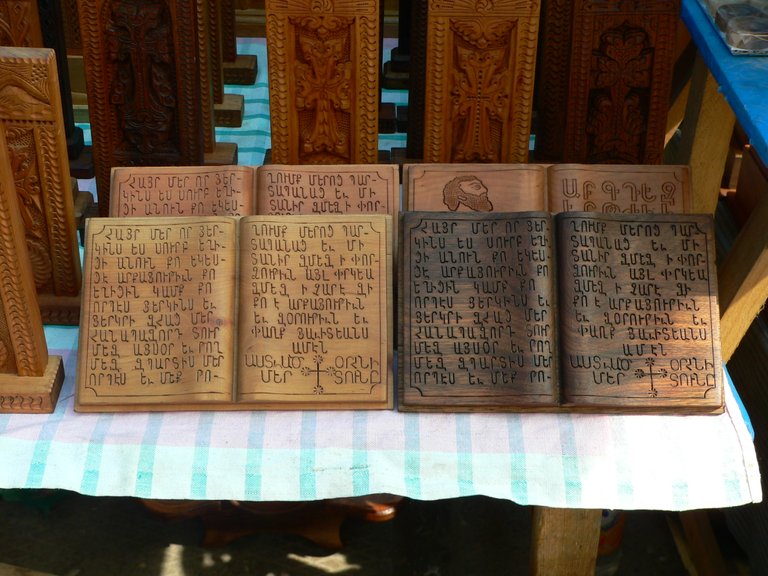 ՀԱՅՐ ՄԵՐ ՈՐ ՅԵՐ
ԿԻՆՍ ԵՍ ՍՈՒՐԲ ԵՂԻ
ՑԻ ԱՆՈՒՆ ՔՈ ԵԿԵՍ
ՂՈՒՔ ՄԵՐՈՑ ՊԱՐ
ՏԱՊԱՆԱՑ ԵՒ ՄԻ
ՏԱՆԻՐ ԶՄԵԶ Ի ՓՈՐ
Ա Բ Գ Դ Ե Զ
ՀԱՅՐ ՄԵՐ ՈՐ ՅԵՐ
ԿԻՆՍ ԵՍ ՍՈՒՐԲ ԵՂԻ
ՑԻ ԱՆՈՒՆ ՔՈ ԵԿԵՍ
ՑԵ ԱՐՔԱՅՈՒԹԻՒՆ ՔՈ
ԵՂԻՑԻՆ ԿԱՄՔ ՔՈ
ՈՐՊԵՍ ՅԵՐԿԻՆՍ ԵՒ
ՅԵՐԿՐԻ ԶՀԱՑ ՄԵՐ
ՀԱՆԱՊԱԶՈՐԴ ՏՈՒՐ
ՄԵԶ ԱՅՍՕՐ ԵՒ ԹՈՂ
ՄԵԶ ԶՊԱՐՏԻՍ ՄԵՐ
ՈՐՊԵՍ ԵՒ ՄԵՔ ԹՈ-
ՂՈՒՔ ՄԵՐՈՑ ՊԱՐ
ՏԱՊԱՆԱՑ ԵՒ ՄԻ
ՏԱՆԻՐ ԶՄԵԶ Ի ՓՈՐ
ՁՈՒԹԻՒՆ ԱՅԼ ՓՐԿԵԱ
ԶՄԵԶ Ի ՉԱՐԷ ԶԻ
ՔՈ Է ԱՐՔԱՅՈՒԹԻՒՆ
ԵՒ ԶՕՐՈՒԹԻՒՆ ԵՒ
ՓԱՌՔ ՅԱՒԻՏԵԱՆՍ
ԱՄԷՆ
ԱՍՏՎԱԾ ՕՐՀՆԻ
ՄԵՐ ՏՈՒՆԸ
ՀԱՅՐ ՄԵՐ ՈՐ ՅԵՐ
ԿԻՆՍ ԵՍ ՍՈՒՐԲ ԵՂԻ
ՑԻ ԱՆՈՒՆ ՔՈ ԵԿԵՍ
ՑԵ ԱՐՔԱՅՈՒԹԻՒՆ ՔՈ
ԵՂԻՑԻՆ ԿԱՄՔ ՔՈ
ՈՐՊԵՍ ՅԵՐԿԻՆՍ ԵՒ
ՅԵՐԿՐԻ ԶՀԱՑ ՄԵՐ
ՀԱՆԱՊԱԶՈՐԴ ՏՈՒՐ
ՄԵԶ ԱՅՍՕՐ ԵՒ ԹՈՂ
ՄԵԶ ԶՊԱՐՏԻՍ ՄԵՐ
ՈՐՊԵՍ ԵՒ ՄԵՔ ԹՈ-
ՂՈՒՔ ՄԵՐՈՑ ՊԱՐ
ՏԱՊԱՆԱՑ ԵՒ ՄԻ
ՏԱՆԻՐ ԶՄԵԶ Ի ՓՈՐ
ՁՈՒԹԻՒՆ ԱՅԼ ՓՐԿԵԱ
ԶՄԵԶ Ի ՉԱՐԷ ԶԻ
ՔՈ Է ԱՐՔԱՅՈՒԹԻՒՆ
ԵՒ ԶՕՐՈՒԹԻՒՆ ԵՒ
ՓԱՌՔ ՅԱՒԻՏԵԱՆՍ
ԱՄԷՆ
ԱՍՏՎԱԾ ՕՐՀՆԻ
ՄԵՐ ՏՈՒՆԸ